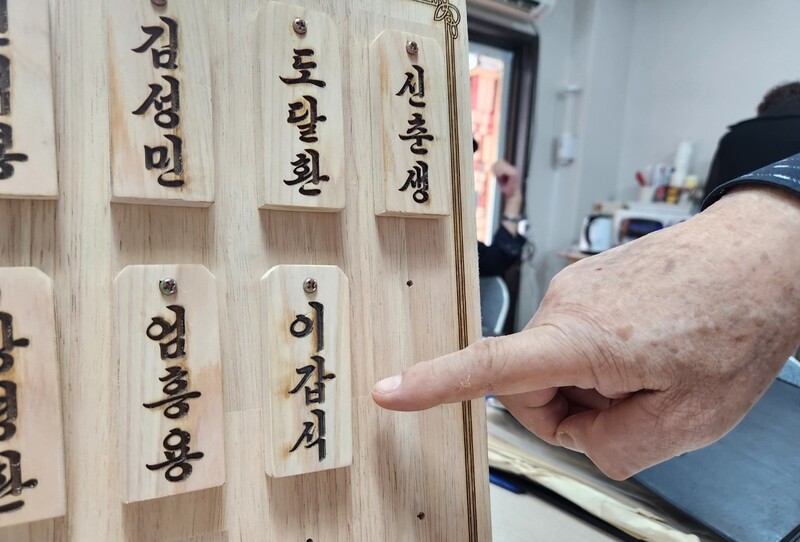 김성민
도달환
신춘생
엄흥용
이갑식